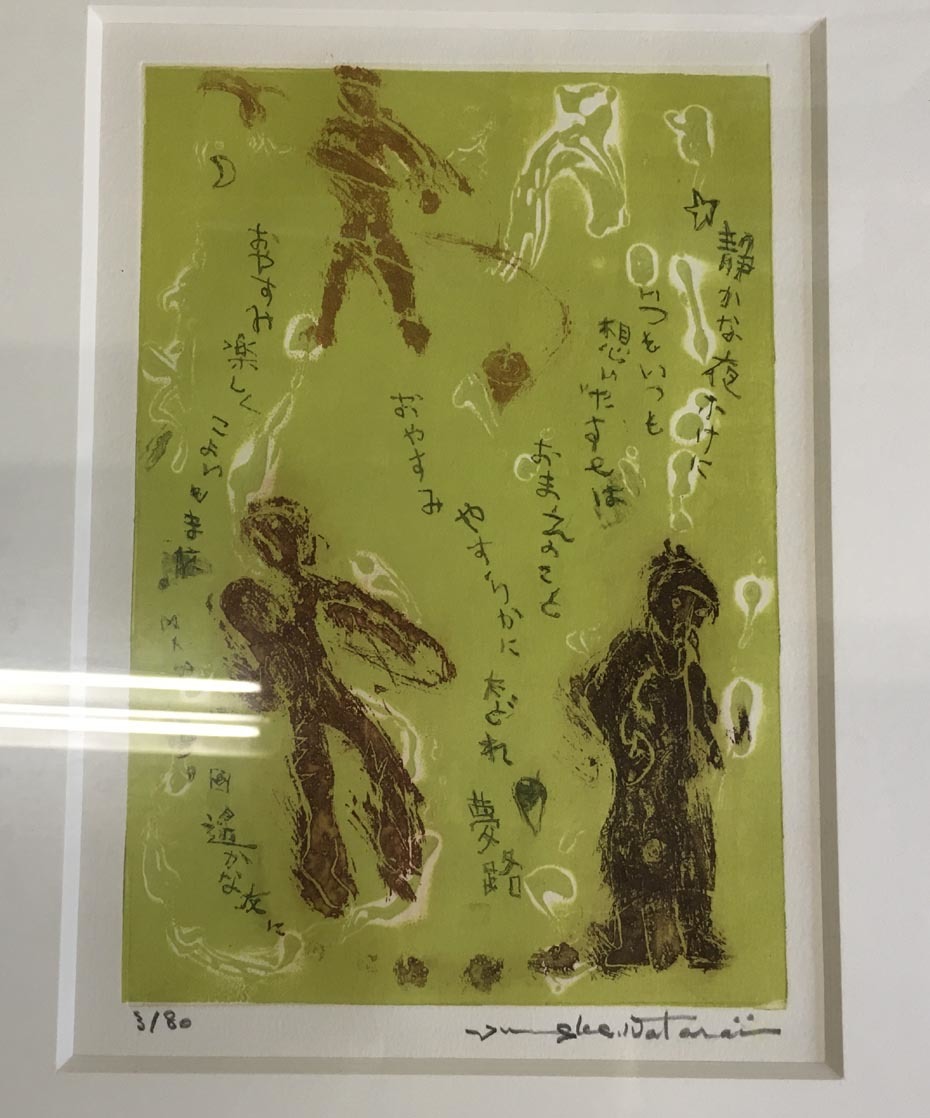 静かな夜ふけに
いつもいつも
想いだすのは
おまえのこと
おやすみ
やすらかに たどれ
夢路
おやすみ
楽しく
こよいもまた
遙かな友に
3/80